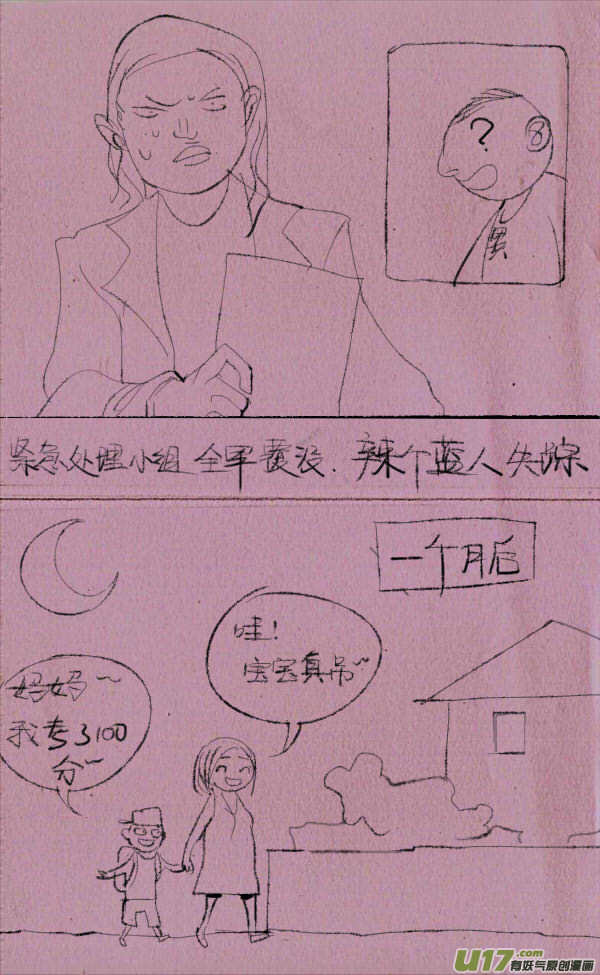 ?
男
紧急处理小组 全军覆没. 辣个蓝人失踪
一个月后
哇!
宝宝真吊~
妈妈~
我考了100
分~
U17.com
有妖气原创漫画